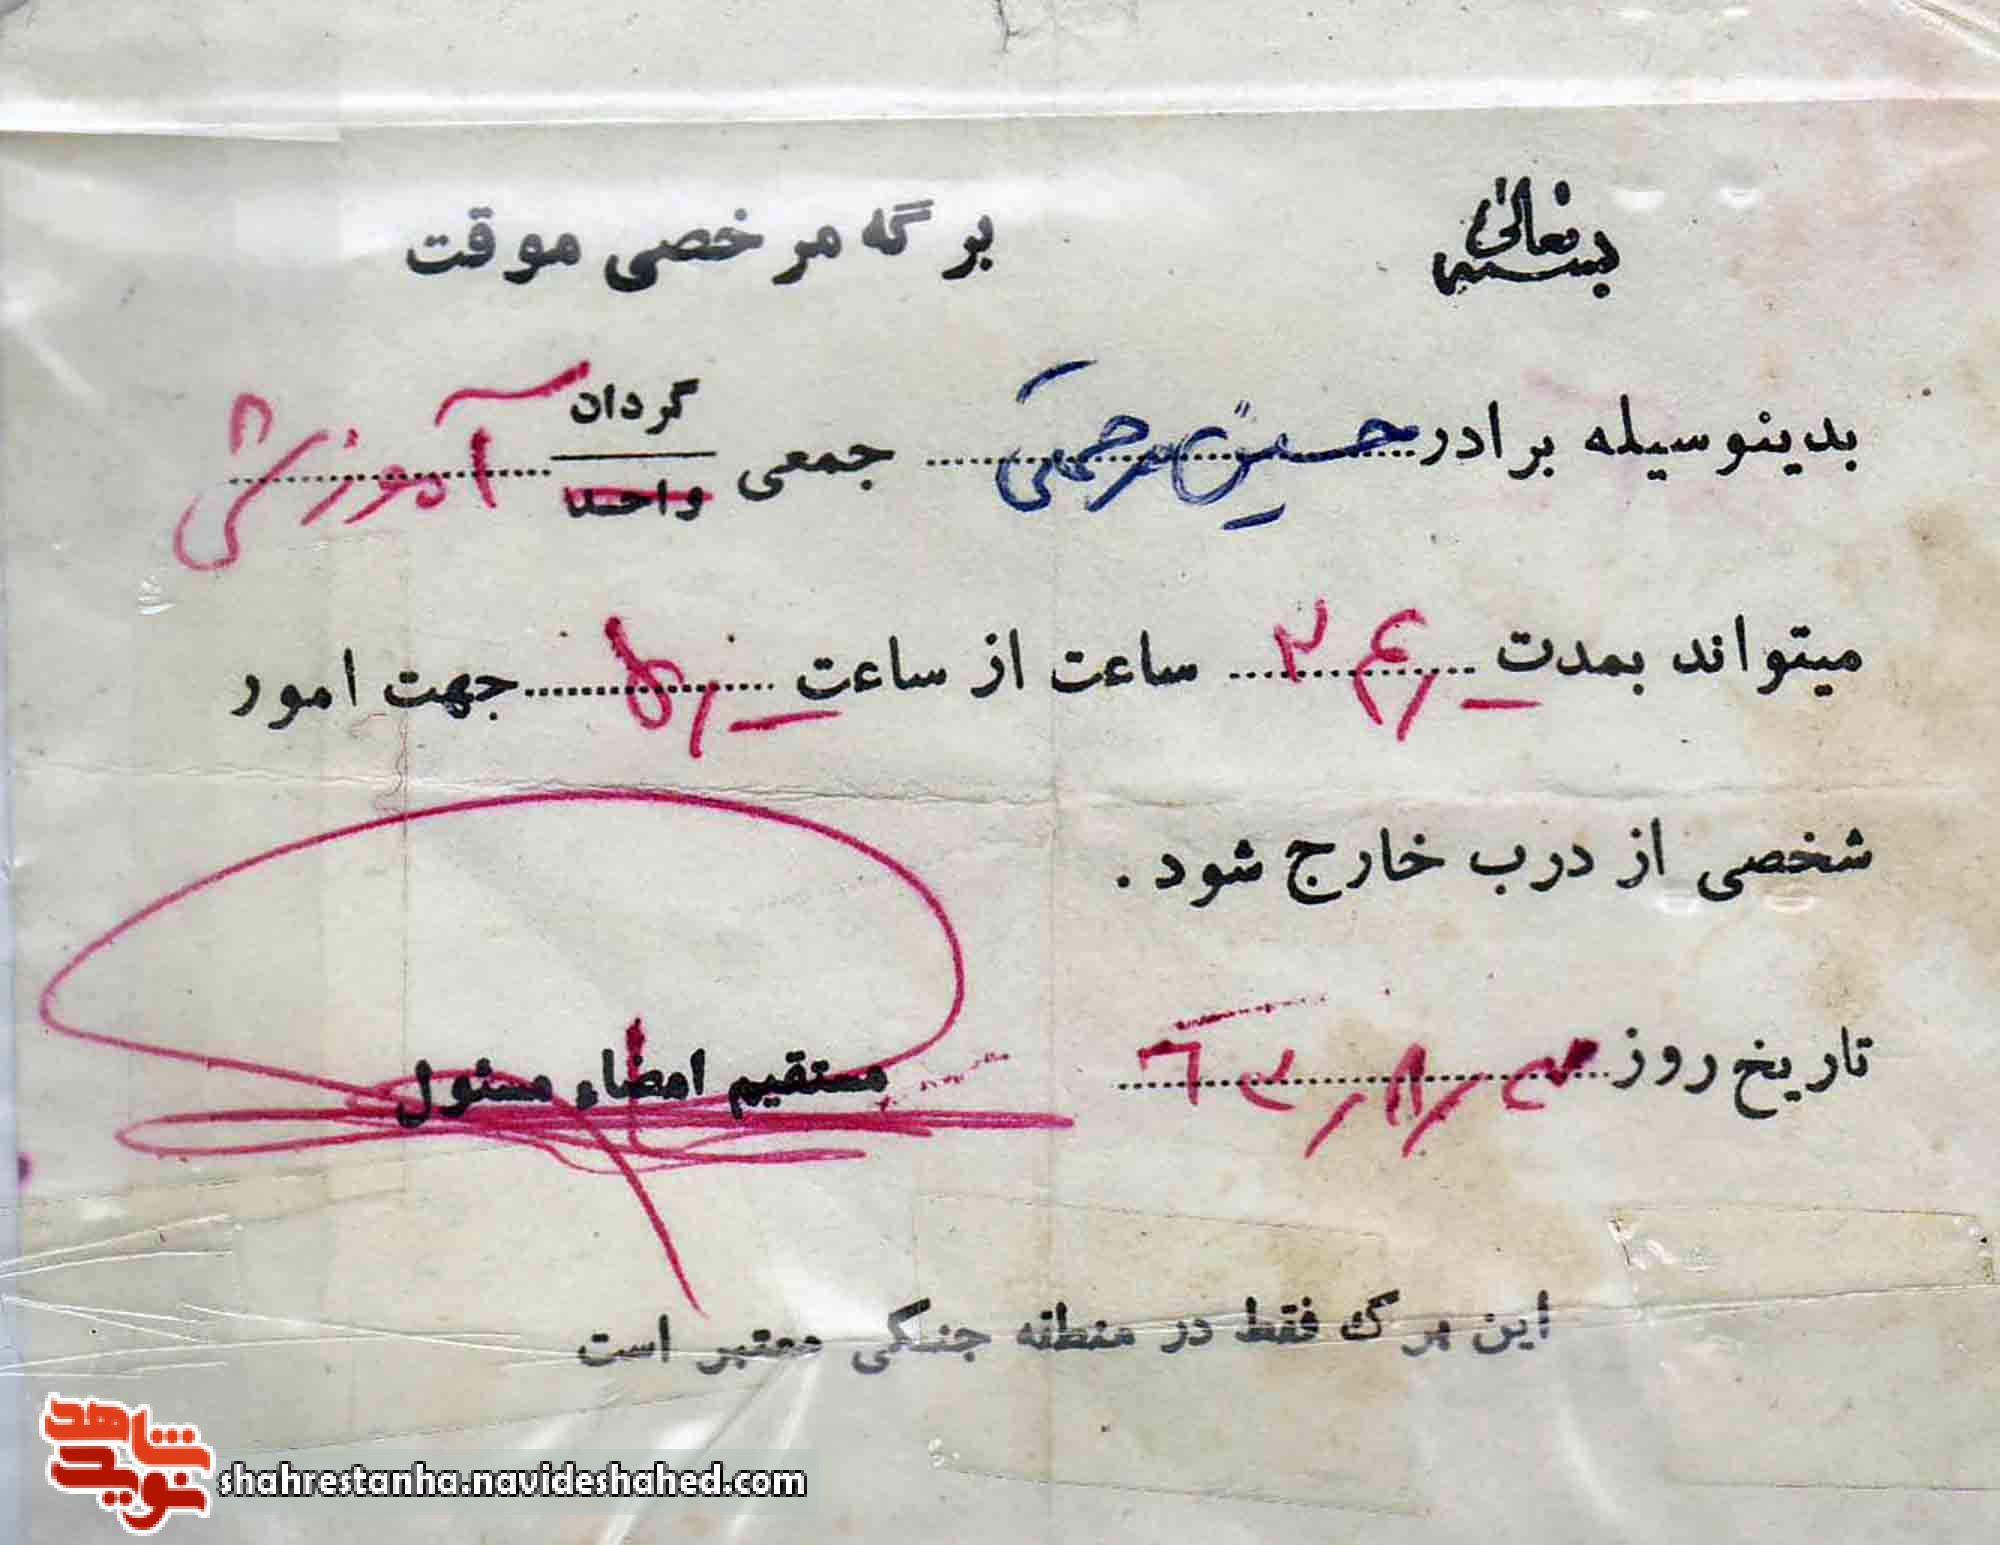 بسمه تعالی
برگه مرخصی موقت
بدینوسیله برادر حسین مرحمتی جمعی گردان واحد آموزشی
میتواند بمدت ۲۴/ ساعت از ساعت ۵/ جهت امور
شخصی از درب خارج شود.
تاریخ روز ۶۲/۸/
مستقیم امضاء مسئول
این برگ فقط در منطقه جنگی معتبر است
نوید شاهد
shahrestanha.navideshahed.com